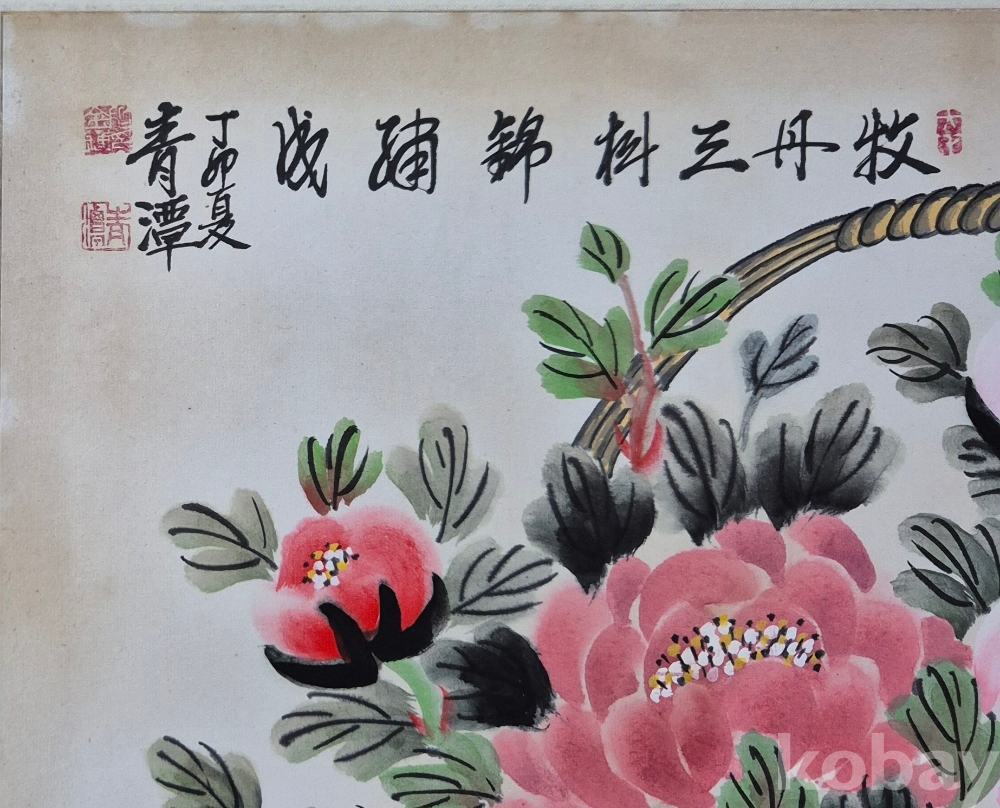 牧丹三樹錦繡成
丁卯夏
青潭
kobay